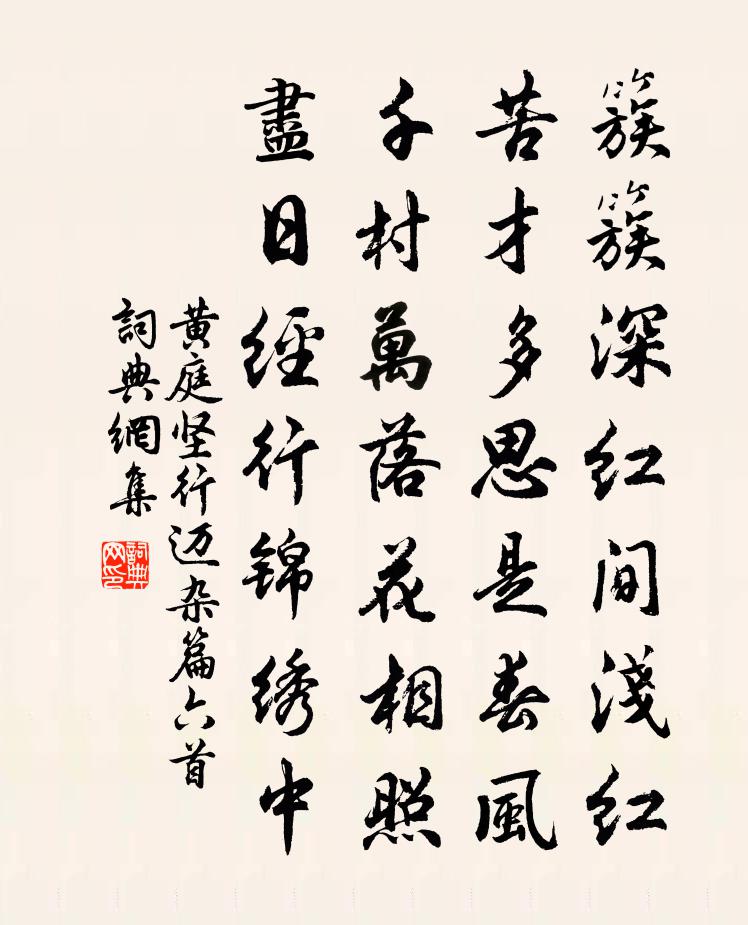 簇簇深红间淺红
苦才多思是春風
千村萬落花相照
盡日經行锦绣中
黄庭坚行迈杂篇六首
詞典網集
詞典網印